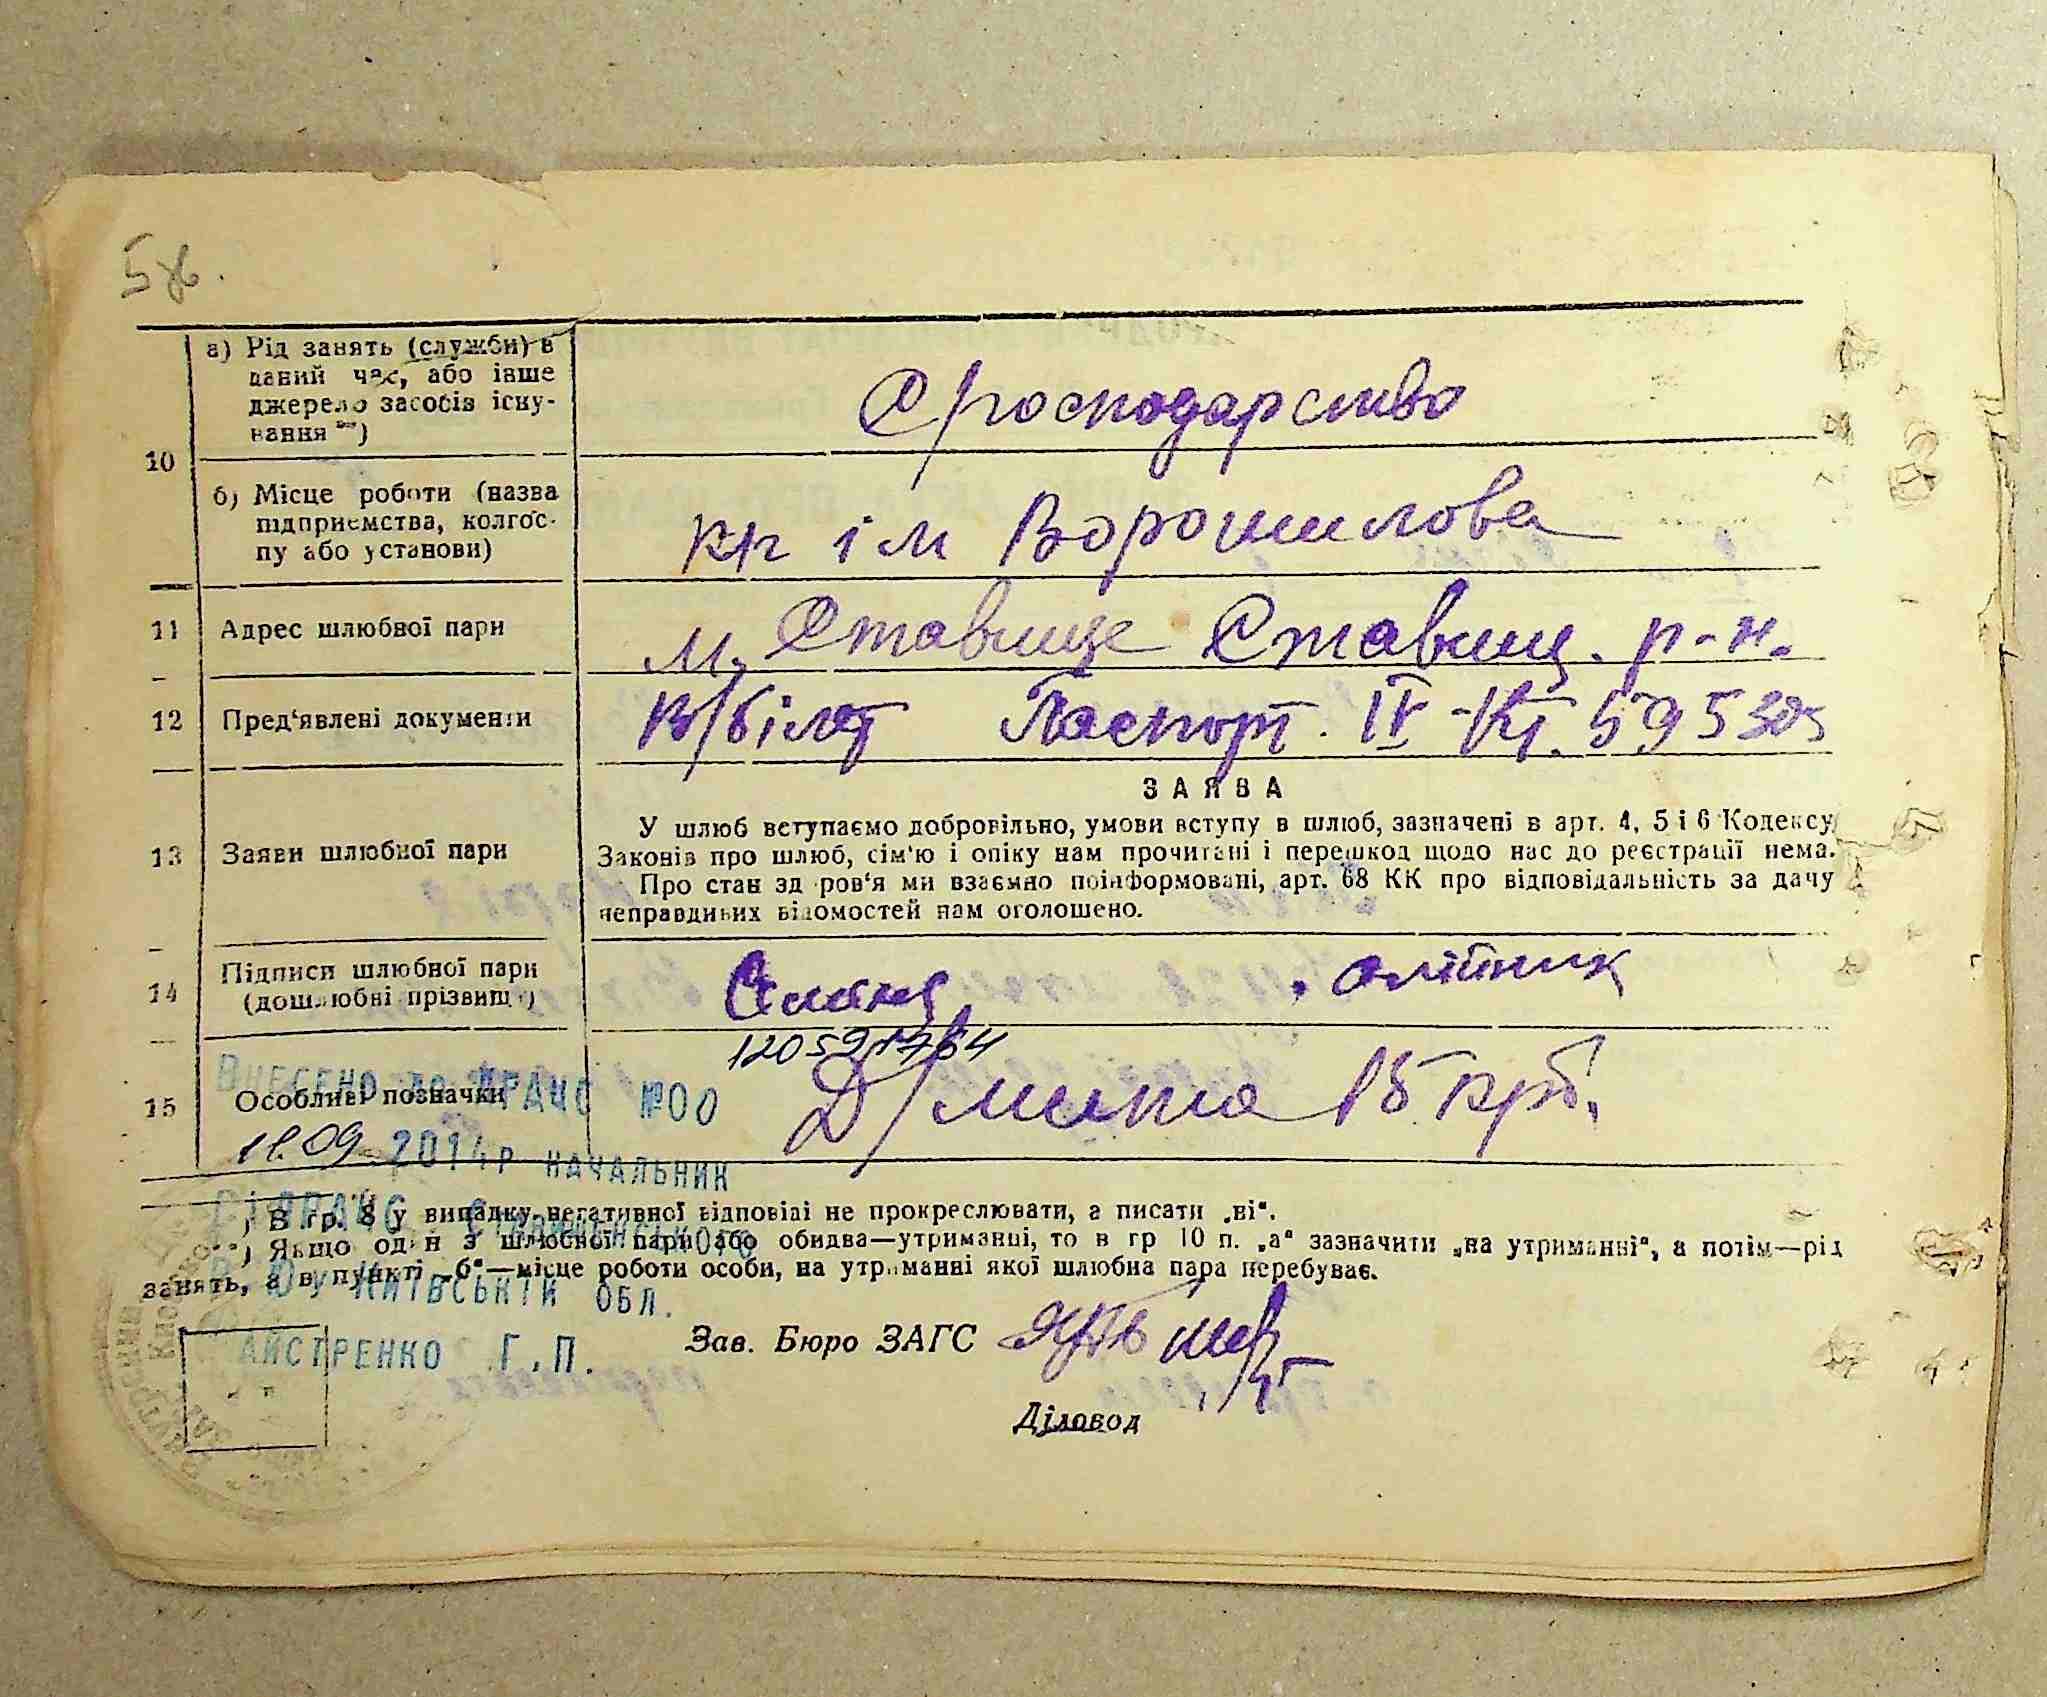 а) Рід занять (служби) в
даний час, або інше
джерело засобів існу-
вання **)
С/господарство
10
б) Місце роботи (назва
підприємства, колгос-
пу або установи)
к/г ім Ворошилова
11 Адрес шлюбної пари м. Ставище Ставищ. р-н.
12 Пред'явлені документи В/білет Паспорт. IV-КГ. 595305
ЗАЯВА
13 Заяви шлюбної пари
У шлюб вступаємо добровільно, умови вступу в шлюб, зазначені в арт. 4, 5 і 6 Кодексу
Законів про шлюб, сім'ю і опіку нам прочитані і перешкод щодо нас до реєстрації нема.
Про стан здоров'я ми взаємно поінформовані, арт. 68 КК про відповідальність за дачу
неправдивих відомостей нам оголошено.
14 Підписи шлюбної пари
(дошлюбні прізвища)
Олійник
Внесено до ДРАЦС №00
15 Особливі позначки Д/мита 15 крб.
11.09 2014р начальник
*) В гр. 8 у випадку негативної відповіді не прокреслювати, а писати „ні“.
**) Якщо один з шлюбної пари або обидва—утриманці, то в гр 10 п. „а“ зазначити „на утриманні“, а потім—рід
занять, а в пункті „б“—місце роботи особи, на утриманні якої шлюбна пара перебуває.
у Київській обл.
Айстренко Г.П.
Зав. Бюро ЗАГС
Діловод